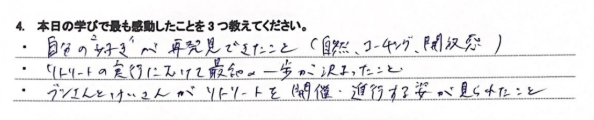 4. 本日の学びで最も感動したことを3つ教えてください。
・ 自分の"好き"が再発見できたこと（自然、コーチング、開放感）
・ リトリートの実行にむけて最初の一歩が決まったこと
・ ブンさんとけいさんがリトリートを開催・進行する姿が見られたこと